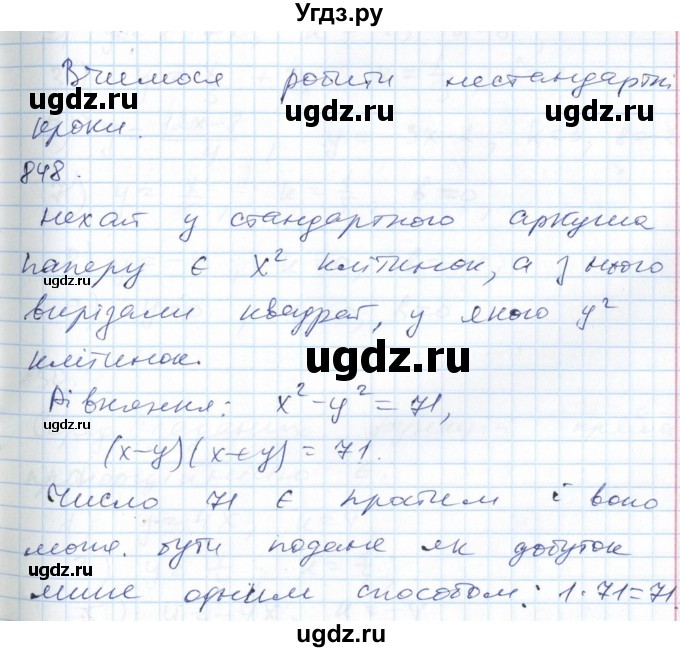 Угдз.ру
Вчимося робити нестандартні
ugdz.ru ugdz.ru ugdz.ru
кроки.
848.
Нехай у стандартного аркуша
паперу є x² клітинок, а з нього
вирізали квадрат, у якого y²
клітинок.
ugdz.ru
Рівняння: x²-y²=71,
ugdz.ru ugdz.ru
(x-y)(x+y)=71.
Число 71 є простим і воно
може бути подане як добуток
ugdz.ru ugdz.ru ugdz.ru
лише одним способом: 1·71=71.
ugdz.ru